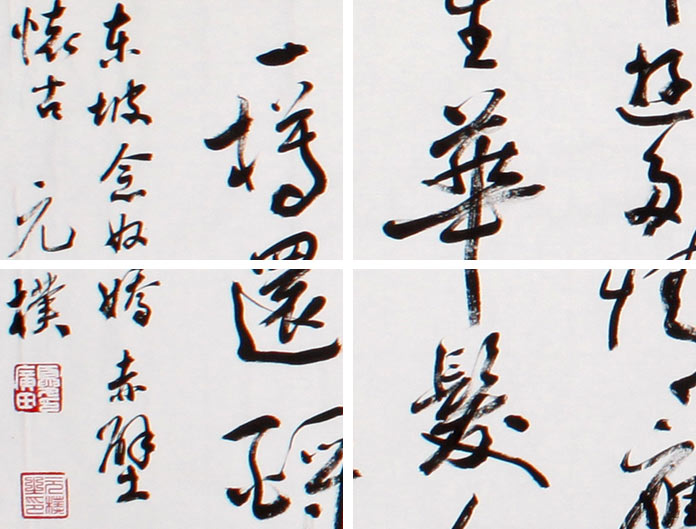 遊多情應
生華髮
一樽還酹
东坡念奴嬌赤壁
懷古 元樸